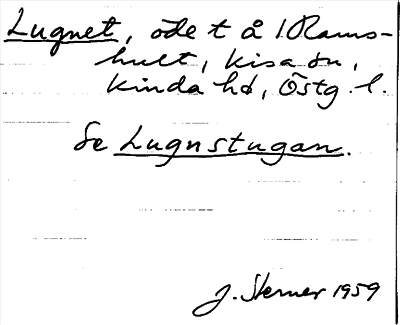 Lugnet, öde t å 1 Rams-
hult, Kisa sn,
Kinda hd, Östg. l.
Se Lugnstugan.
J. Sterner 1959